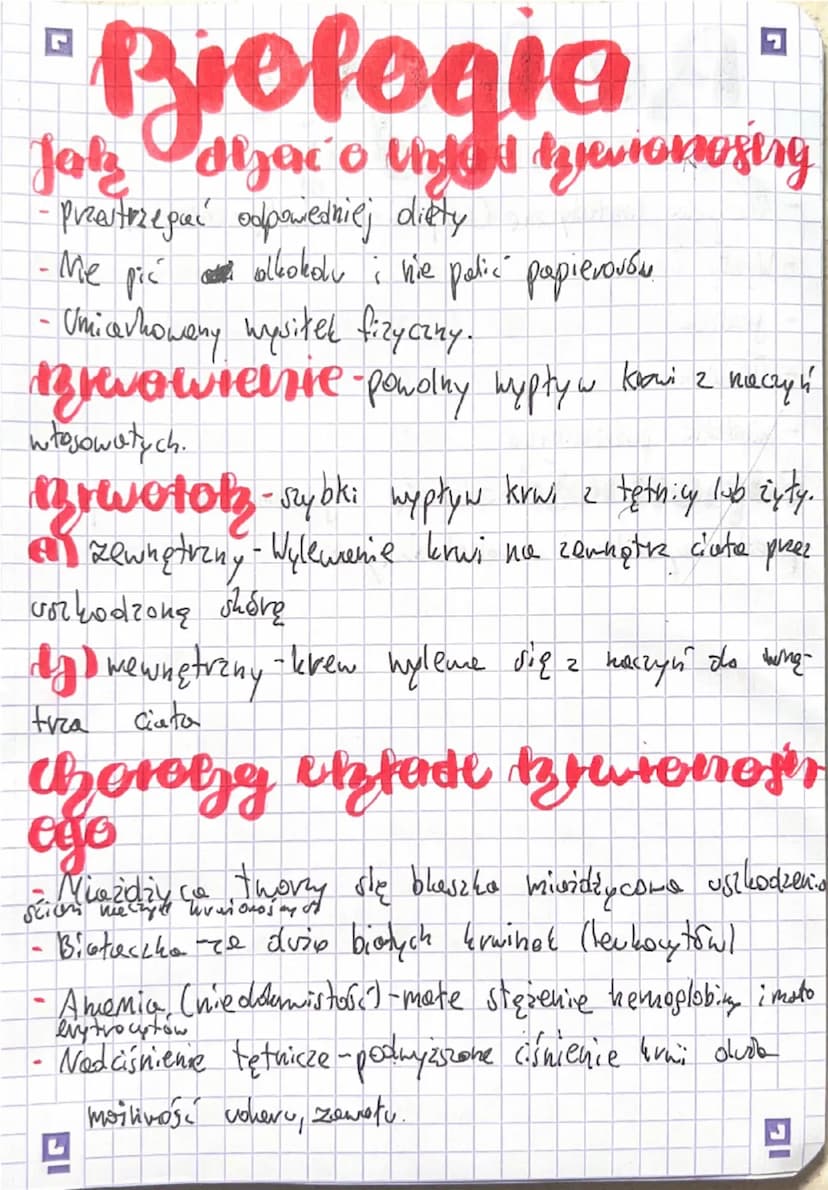 Biologia
Jak dbać o układ krwionośny
- Przestrzegać odpowiedniej diety
- Nie pić alkoholu i nie palić papierosów
- Umiarkowany wysiłek fizyczny.
Krwawienie - powolny wypływ krwi z naczyń
włosowatych.
Krwotok - szybki wypływ krwi z tętnicy lub żyły.
a) zewnętrzny - Wylewanie krwi na zewnątrz ciała przez
uszkodzoną skórę
b) wewnętrzny - krew wylewa się z naczyń do wnę-
trza ciała
Choroby układu krwionośn
ego
- Miażdżyca tworzy się blaszka miażdżycowa uszkodzenia
ścian naczyń krwionośnych
- Białaczka - za dużo białych krwinek (leukocytów)
- Anemia (niedokrwistość) - małe stężenie hemoglobiny i mało
erytrocytów
- Nadciśnienie tętnicze - podwyższone ciśnienie krwi duża
możliwość udaru, zawału.